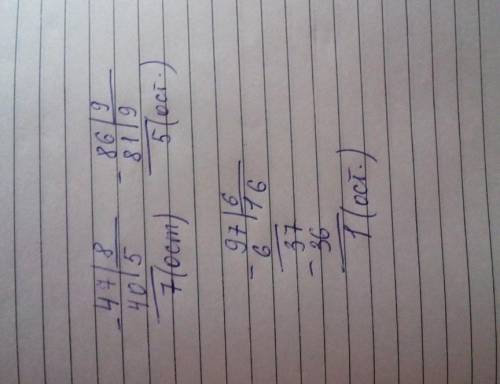 - 47 | 8
40 | 5
7 (ост)
- 86 | 9
81 | 9
5 (ост.)
- 97 | 6
6 | 16
37
- 36
1 (ост.)